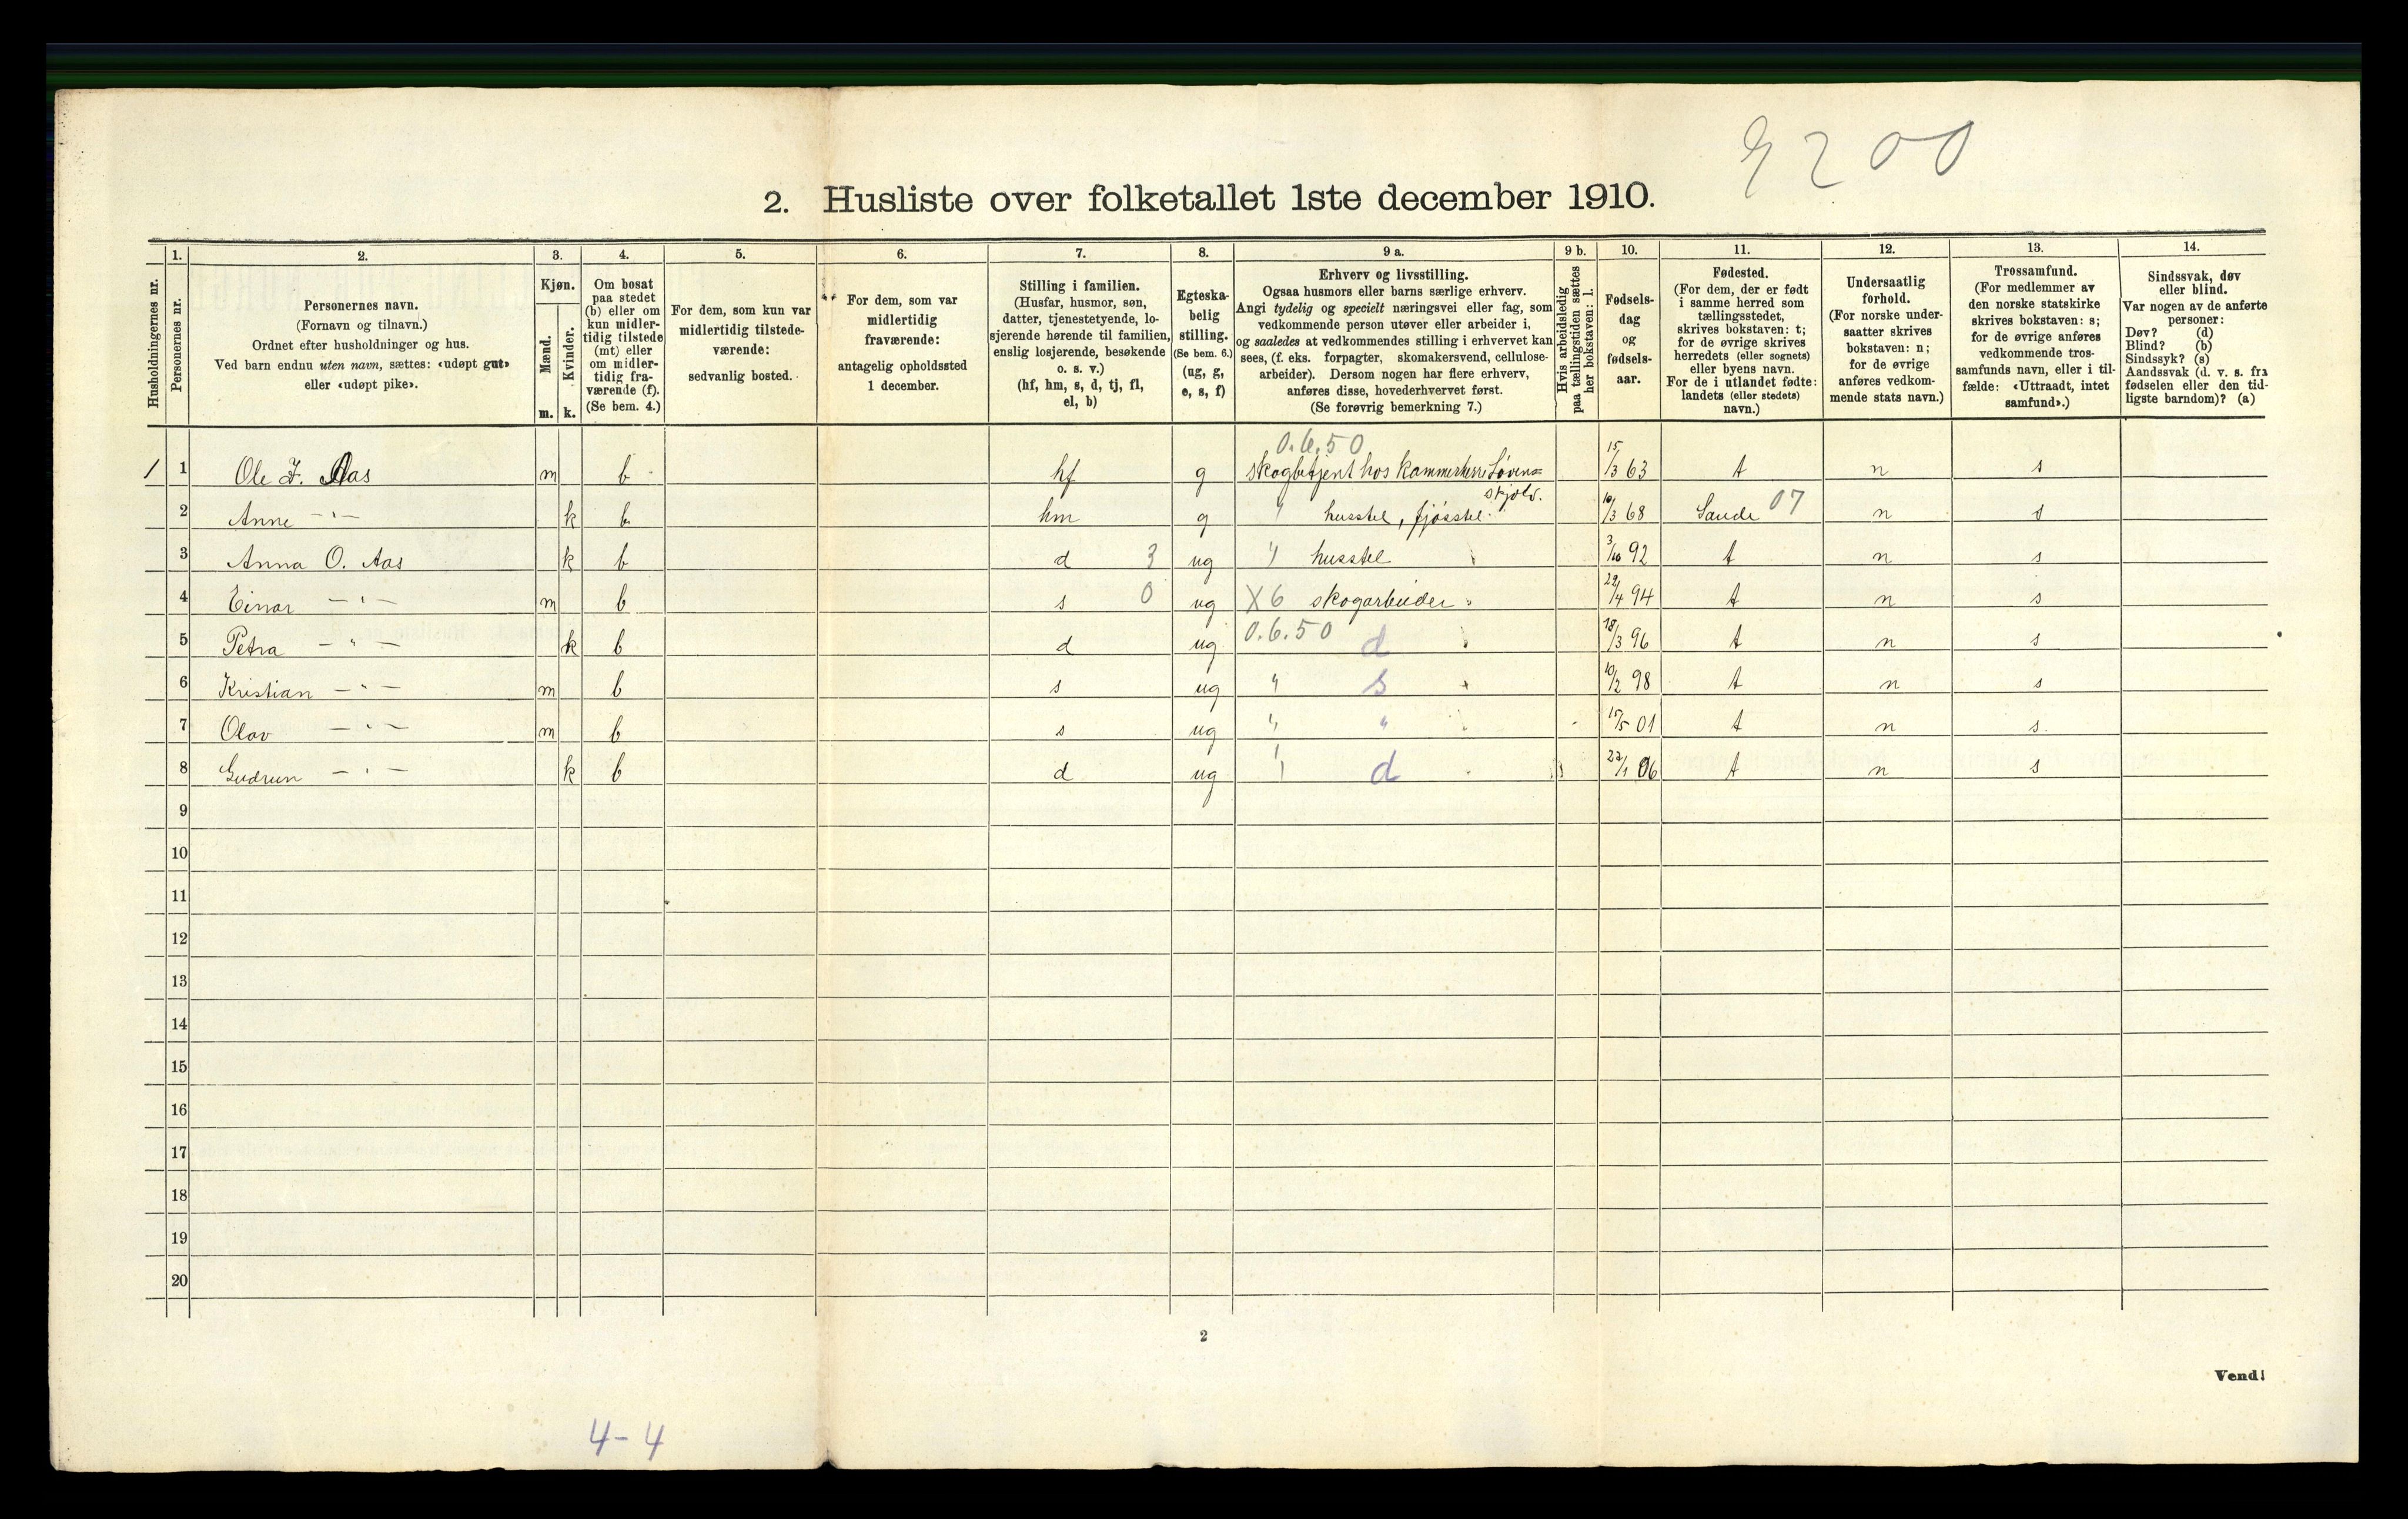 9200
2. Husliste over folketallet 1ste december 1910.
Husholdningernes nr.
1.
Personernes nr.
2.
Personernes navn.
(Fornavn og tilnavn.)
Ordnet efter husholdninger og hus.
Ved barn endnu uten navn, sættes: «udøpt gut»
eller «udøpt pike».
3.
Kjøn.
Mænd.
Kvinder.
m. k.
4.
Om bosat
paa stedet
(b) eller om
kun midler-
tidig tilstede
(mt) eller
om midler-
tidig fra-
værende (f).
(Se bem. 4.)
5.
For dem, som kun var
midlertidig tilstede-
værende:
sedvanlig bosted.
6.
For dem, som var
midlertidig
fraværende:
antagelig opholdssted
1 december.
7.
Stilling i familien.
(Husfar, husmor, søn,
datter, tjenestetyende, lo-
sjerende hørende til familien,
enslig losjerende, besøkende
o. s. v.)
(hf, hm, s, d, tj, fl,
el, b)
8.
Egteska-
belig
stilling.
(Se bem. 6.)
(ug, g,
e, s, f)
9 a.
Erhverv og livsstilling.
Ogsaa husmors eller barns særlige erhverv.
Angi tydelig og specielt næringsvei eller fag, som
vedkommende person utøver eller arbeider i,
og saaledes at vedkommendes stilling i erhvervet kan
sees, (f. eks. forpagter, skomakersvend, cellulose-
arbeider). Dersom nogen har flere erhverv,
anføres disse, hovederhvervet først.
(Se forøvrig bemerkning 7.)
9 b.
Hvis arbeidsledig
paa tællingstiden sættes
her bokstaven: l.
10.
Fødsels-
dag
og
fødsels-
aar.
11.
Fødested.
(For dem, der er født
i samme herred som
tællingsstedet,
skrives bokstaven: t;
for de øvrige skrives
herredets (eller sognets)
eller byens navn.
For de i utlandet fødte:
landets (eller stedets)
navn.)
12.
Undersaatlig
forhold.
(For norske under-
saatter skrives
bokstaven: n;
for de øvrige
anføres vedkom-
mende stats navn.)
13.
Trossamfund.
(For medlemmer av
den norske statskirke
skrives bokstaven: s;
for de øvrige anføres
vedkommende tros-
samfunds navn, eller i til-
fælde: «Uttraadt, intet
samfund».)
14.
Sindssvak, døv
eller blind.
Var nogen av de anførte
personer:
Døv? (d)
Blind? (b)
Sindssyk? (s)
Aandssvak (d. v. s. fra
fødselen eller den tid-
ligste barndom)? (a)
0.6.50
1 1 Ole J. Aas m b hf g skogbetjent hos Kammerherre Løven= 15/3 63 t n s
skjold.
2 Anne —"— k b hm g " husstel, fjösstel 10/3 68 Sande 07 n s
3 Anna O. Aas k b d 3 ug " husstel 3/10 92 t n s
4 Einar —"— m b s 0 ug X6 skogarbeider 29/4 94 t n s
5 Petra —"— k b d ug 0.6.50 d 18/3 96 t n s
6 Kristian —"— m b s ug " s 10/2 98 t n s
7 Olav —"— m b s ug " " 15/5 01 t n s.
8 Gudrun —"— k b d ug " d 22/1 06 t n s
9
10
11
12
13
14
15
16
17
18
19
20
2
Vend!
4-4